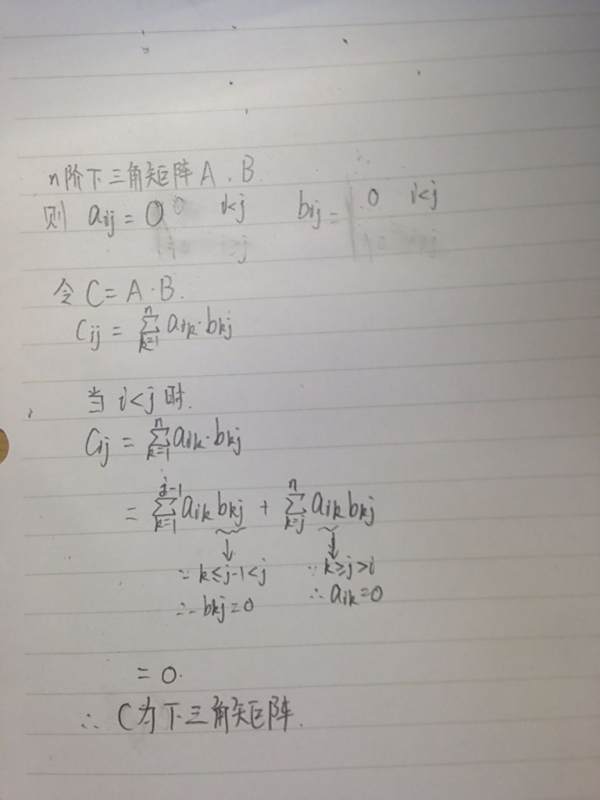 n阶下三角矩阵A、B
则 aij = 0 0 i<j bij = 0 i<j
令 C = A·B.
Cij = ∑_{k=1}^{n} aik·bkj
当 i<j 时.
Cij = ∑_{k=1}^{n} aik·bkj
= ∑_{k=1}^{j-1} aik bkj + ∑_{k=j}^{n} aik bkj
↓ ↓
∵ k≤j-1<j ∵ k≥j>i
∴ bkj=0 ∴ aik=0
= 0.
∴ C为下三角矩阵.